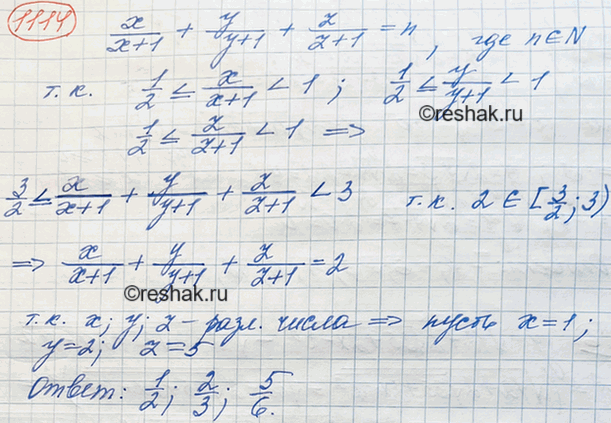 1114
x/(x+1) + y/(y+1) + z/(z+1) = n, где n∈N
т.к. 1/2 ≤ x/(x+1) < 1; 1/2 ≤ y/(y+1) < 1
1/2 ≤ z/(z+1) < 1 ⇒
3/2 ≤ x/(x+1) + y/(y+1) + z/(z+1) < 3 т.к. 2 ∈ [3/2; 3)
©reshak.ru
⇒ x/(x+1) + y/(y+1) + z/(z+1) = 2
©reshak.ru
т.к. x; y; z - разл. числа ⇒ пусть x=1;
y=2; z=5
Ответ: 1/2; 2/3; 5/6.
©reshak.ru